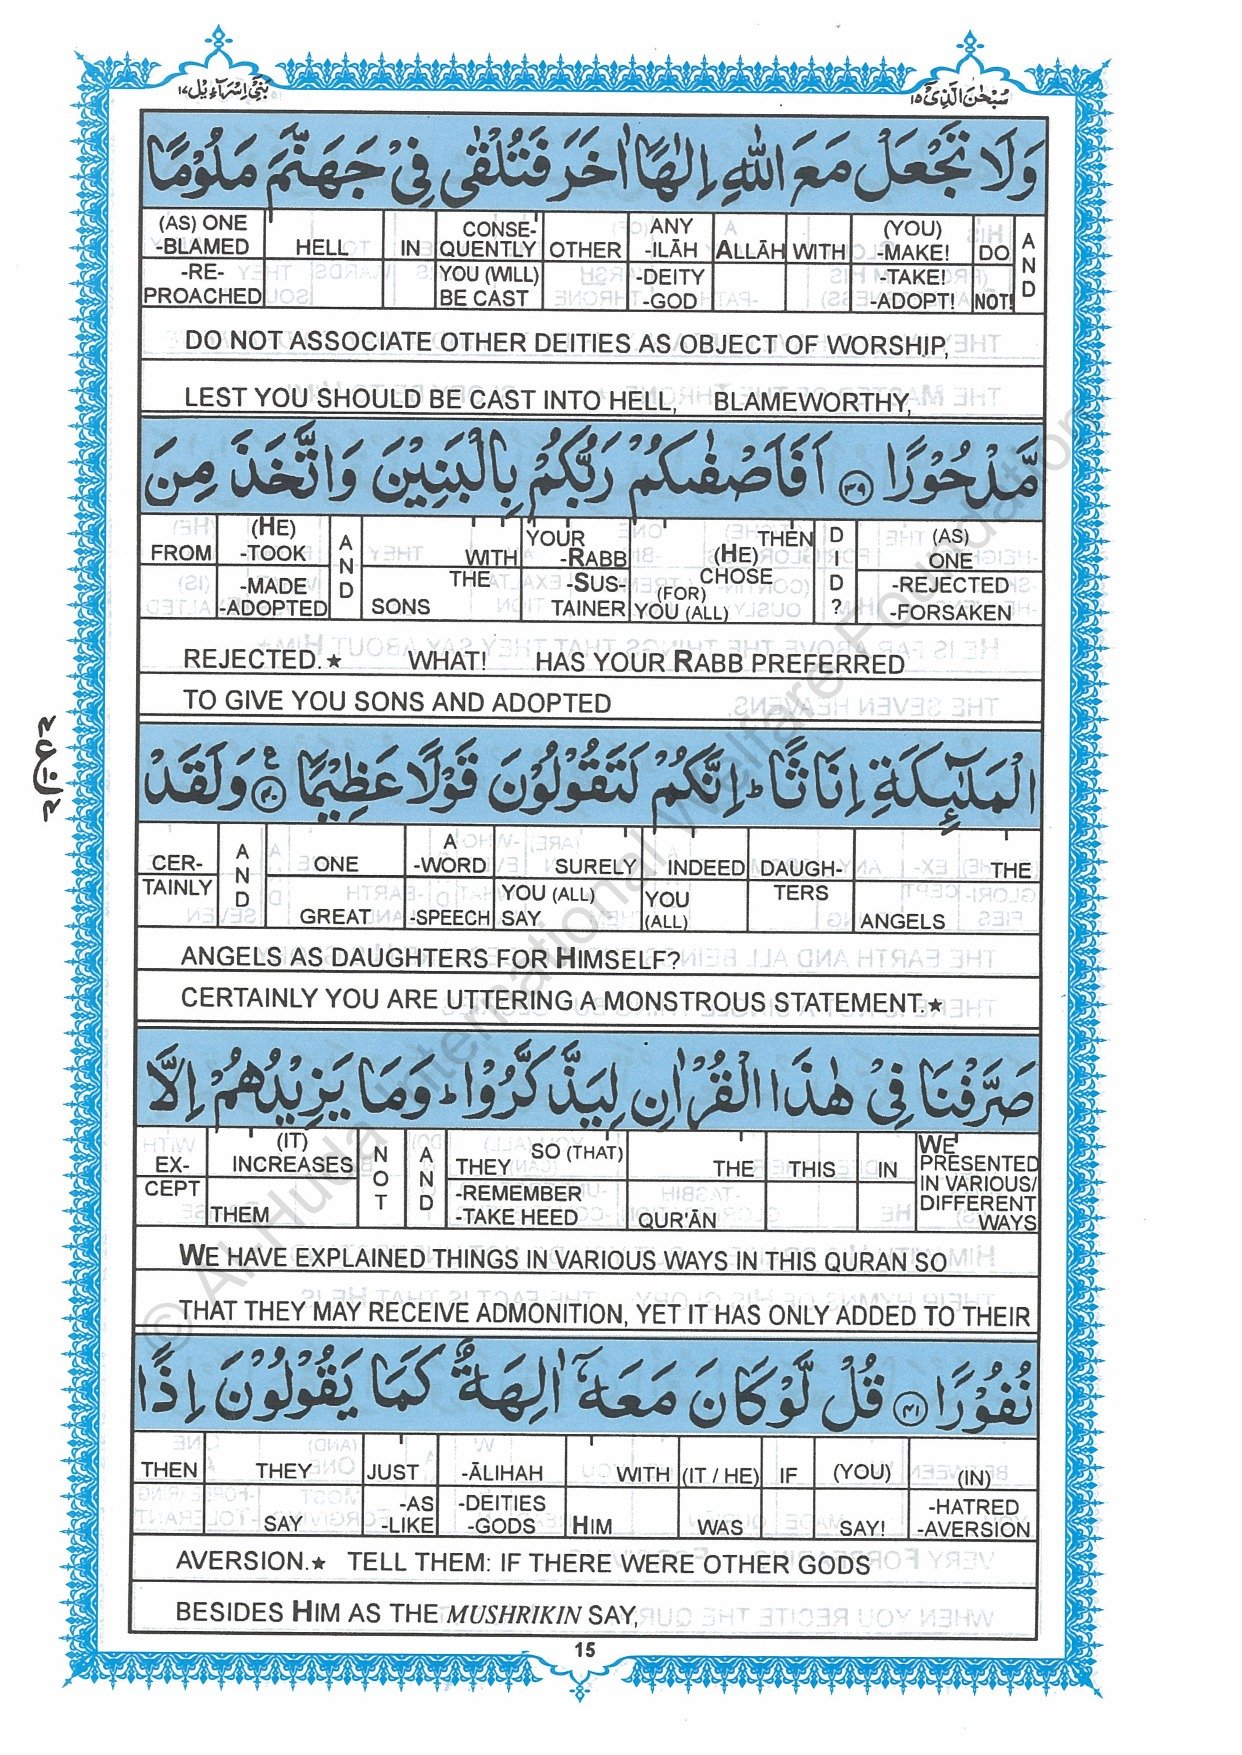 سُبْحٰنَ الَّذِیْۤ ١٥
بَنِیْۤ اِسْرَآءِیْل ١٧
وَلَا تَجْعَلْ مَعَ اللّٰهِ اِلٰهًا اٰخَرَ فَتُلْقٰى فِیْ جَهَنَّمَ مَلُوْمًا
(AS) ONE -BLAMED -RE-PROACHED | HELL | IN | CONSE-QUENTLY YOU (WILL) BE CAST | OTHER | ANY -ILĀH -DEITY -GOD | ALLĀH | WITH | (YOU) -MAKE! -TAKE! -ADOPT! | DO NOT! | AND
DO NOT ASSOCIATE OTHER DEITIES AS OBJECT OF WORSHIP,
LEST YOU SHOULD BE CAST INTO HELL, BLAMEWORTHY,
مَّدْحُوْرًا ﴿٣٩﴾ اَفَاَصْفٰىكُمْ رَبُّكُمْ بِالْبَنِیْنَ وَاتَّخَذَ مِنَ
FROM | (HE) -TOOK -MADE -ADOPTED | AND | WITH THE SONS | YOUR -RABB -SUS-TAINER | THEN (HE) CHOSE (FOR) YOU (ALL) | DID ? | (AS) ONE -REJECTED -FORSAKEN
REJECTED.★ WHAT! HAS YOUR RABB PREFERRED
TO GIVE YOU SONS AND ADOPTED
الْمَلٰٓئِكَةِ اِنَاثًا ؕ اِنَّكُمْ لَتَقُوْلُوْنَ قَوْلًا عَظِیْمًا ﴿٤٠﴾ ع وَلَقَدْ
CER-TAINLY | AND | ONE GREAT | A -WORD -SPEECH | SURELY YOU (ALL) SAY | INDEED YOU (ALL) | DAUGH-TERS | THE ANGELS
ANGELS AS DAUGHTERS FOR HIMSELF?
CERTAINLY YOU ARE UTTERING A MONSTROUS STATEMENT.★
صَرَّفْنَا فِیْ هٰذَا الْقُرْاٰنِ لِیَذَّكَّرُوْا ؕ وَمَا یَزِیْدُهُمْ اِلَّا
EX-CEPT | (IT) INCREASES THEM | NOT | AND | SO (THAT) THEY -REMEMBER -TAKE HEED | THE QUR'ĀN | THIS | IN | WE PRESENTED IN VARIOUS/ DIFFERENT WAYS
WE HAVE EXPLAINED THINGS IN VARIOUS WAYS IN THIS QURAN SO
THAT THEY MAY RECEIVE ADMONITION, YET IT HAS ONLY ADDED TO THEIR
نُفُوْرًا ﴿٤١﴾ قُلْ لَّوْ كَانَ مَعَهٗۤ اٰلِهَةٌ كَمَا یَقُوْلُوْنَ اِذًا
THEN | THEY SAY | JUST -AS -LIKE | -ĀLIHAH -DEITIES -GODS | WITH HIM | (IT / HE) WAS | IF | (YOU) SAY! | (IN) -HATRED -AVERSION
AVERSION.★ TELL THEM: IF THERE WERE OTHER GODS
BESIDES HIM AS THE MUSHRIKIN SAY,
15
© Al-Huda International Welfare Foundation